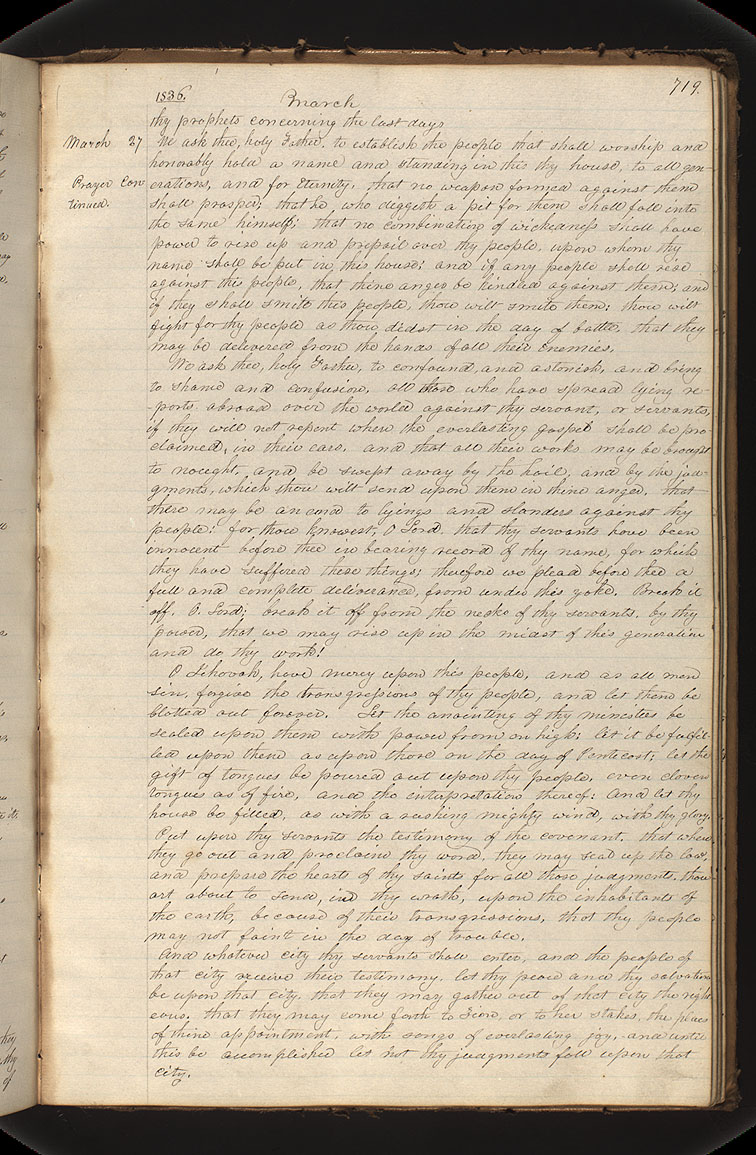 719.
1836. March
thy prophets concerning the last days
March 27 We ask thee, holy Father, to establish the people that shall worship and
honorably hold a name and standing in this thy house, to all gen-
Prayer Con erations, and for Eternity, that no weapon formed against them
tinued. shall prosper; that he who diggeth a pit for them shall fall into
the same himself; that no combination of wickedness shall have
power to rise up and prevail over thy people, upon whom thy
name shall be put in this house; and if any people shall rise
against this people, that thine anger be kindled against them; and
if they shall smite this people, thou wilt smite them; thou wilt
fight for thy people as thou didst in the day of battle, that they
may be delivered from the hands of all their enemies.
We ask thee, holy Father, to confound, and astonish, and bring
to shame and confusion, all those who have spread lying re-
-ports abroad over the world against thy servant, or servants,
if they will not repent when the everlasting gospel shall be pro
claimed, in their ears, and that all their works may be brought
to nought, and be swept away by the hail, and by the jud-
gments, which thou wilt send upon them in thine anger, that
there may be an end to lyings and slanders against thy
people: for thou knowest, O Lord, that thy servants have been
innocent before thee in bearing record of thy name, for which
they have suffered these things; therefore we plead before thee a
full and complete deliverance, from under this yoke. Break it
off, O, Lord; break it off from the necks of thy servants, by thy
power, that we may rise up in the midst of this generation
and do thy work!
O Jehovah, have mercy upon this people, and as all men
sin, forgive the transgressions of thy people, and let them be
blotted out forever. Let the anointing of thy ministers be
sealed upon them with power from on high; let it be fulfil-
led upon them as upon those on the day of Pentecost; let the
gift of tongues be poured out upon thy people, even cloven
tongues as of fire, and the interpretation thereof: and let thy
house be filled, as with a rushing mighty wind, with thy glory.
Put upon thy servants the testimony of the covenant, that when
they go out and proclaim thy word, they may seal up the law,
and prepare the hearts of thy saints for all those judgments, thou
art about to send, in thy wrath, upon the inhabitants of
the earth, because of their transgressions, that thy people
may not faint in the day of trouble.
And whatever city thy servants shall enter, and the people of
that city receive their testimony, let thy peace and thy salvation
be upon that city, that they may gather out of that city the right
eous, that they may come forth to Zion, or to her stakes, the places
of thine appointment, with songs of everlasting joy, and until
this be accomplished let not thy judgments fall upon that
city.